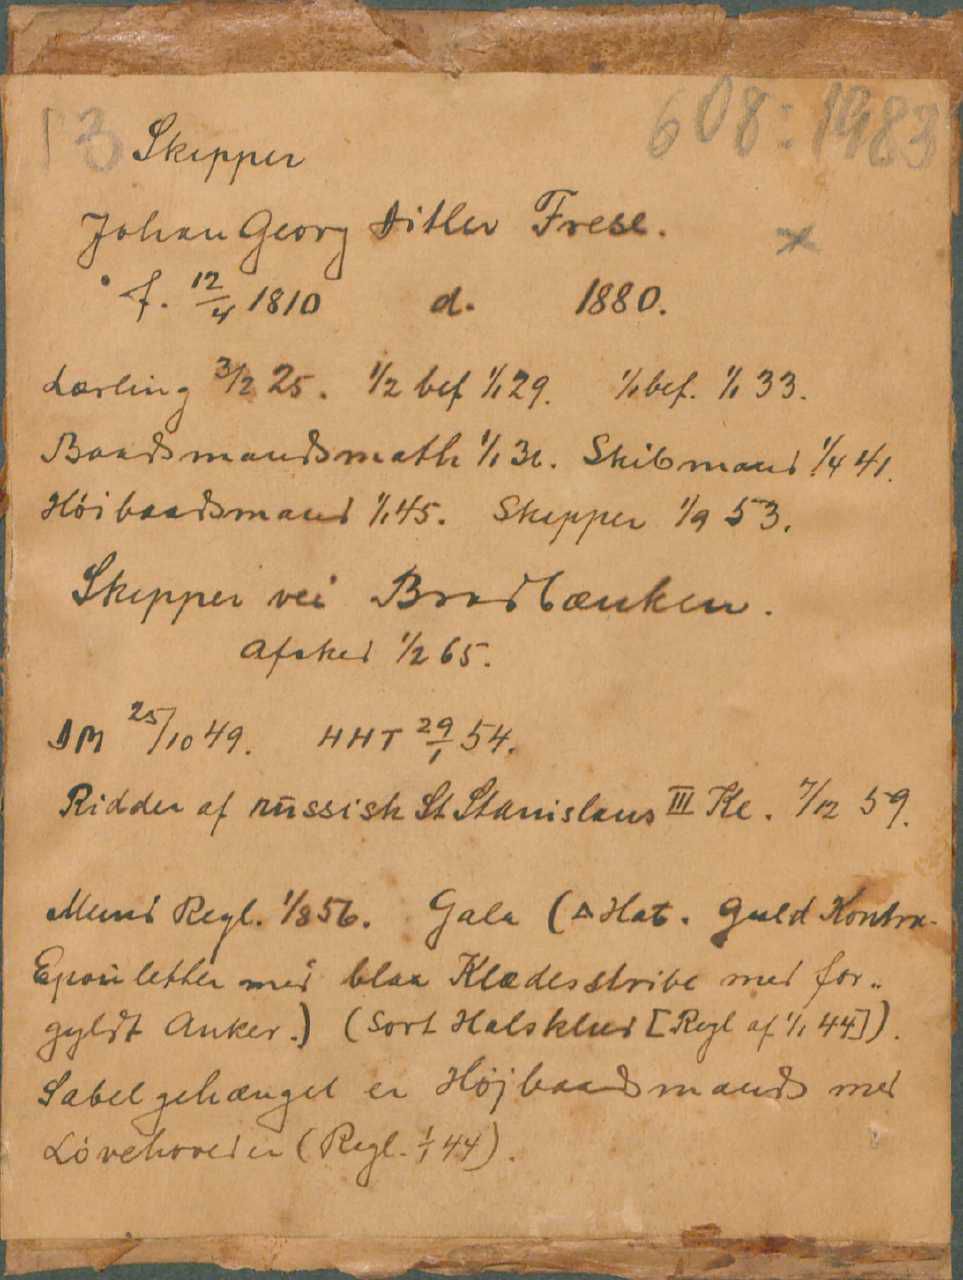 13 608:1983
Skipper
Johan Georg Ditlev Frese.
f. 12/4 1810 d. 1880.
Lærling 3/2 25. 1/2 bef 1/1 29. 1/1 bef. 1/1 33.
Baadsmandsmath 1/1 36. Skibmand 1/4 41.
Høibaadsmand 1/1 45. Skipper 1/9 53.
Skipper vei Bradbænken.
Afsked 1/2 65.
DM 25/10 49. HHT 29/1 54.
Ridder af russisk St Stanislaus III Kl. 7/12 59.
Mund Regl. 1/8 56. Gala (△ Hat. Guld Kontra-
Epouletter med blaa Klædesstribe med for-
gyldt Anker.) (Sort Halsklud [Regl af 1/1 44]).
Sabelgehænget er Højbaadsmands med
Løvehoveder (Regl. 1/1 44).